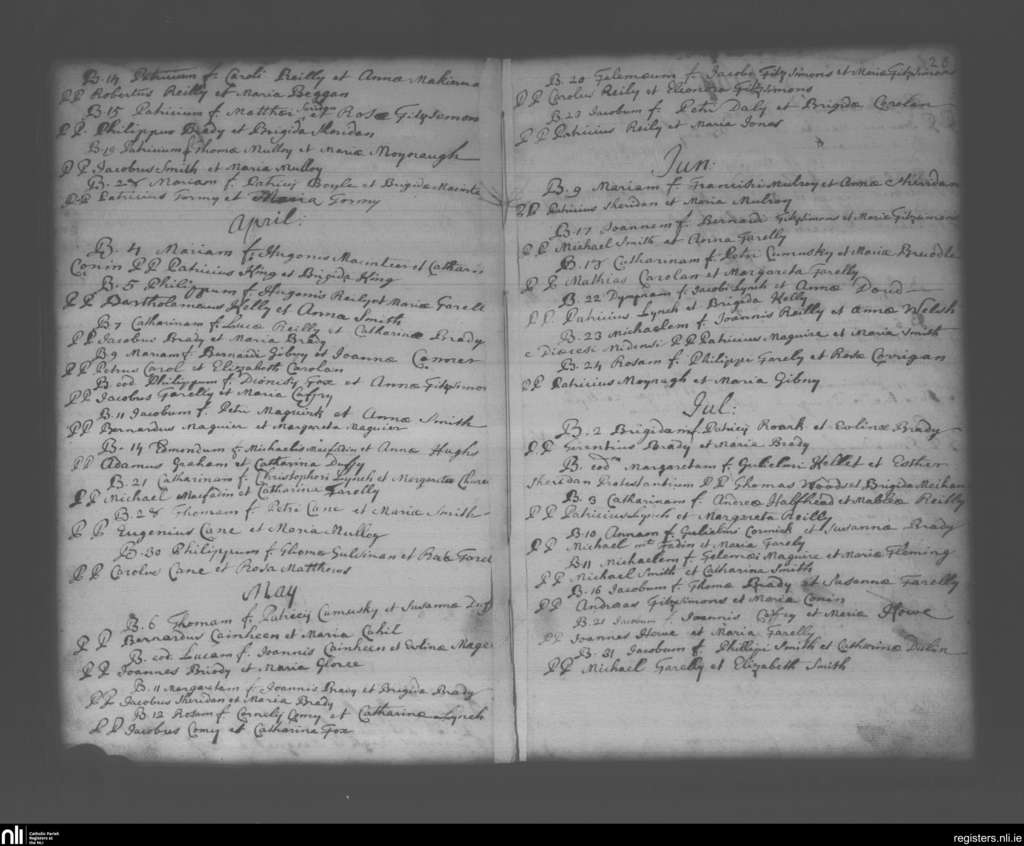 B. 14 Petruum f. Caroli Reilly et Annæ Makierna
P P Robertus Reilly et Maria Beggan
B. 15 Patricium f. Matthei et Rosæ Fitzsemons
P P Philippus Brady et Brigida Sheridan
Patricium f Thomæ Mulloy et Mariæ Moynaugh
P P Jacobus Smith et Maria Mulloy
B. 28 Mariam f. Patricij Boyle et Brigida
P P Patricius Tormy et Maria Tormy
April:
B. 4 Mariam f. Hugonis et Catharin
Conin P P Patricius King et Brigida King
B. 5 Philippum f. Hugonis Reily et Mariæ Garell
P P Bartholameus Kelly et Anna Smith
B. 7 Catharinam f. Lucæ Reilly et Catharinæ Brady
P P Jacobus Brady et Maria Brady
B. 9 Mariam f. Bernardi Gibny et Joannæ Conner
P P Petrus Carol et Elizabeth Carolan
B. eod Philippum f. Dionisij Fox et Annæ Fitzsimons
P P Jacobus Garelly et Maria Caffry
B. 11 Jacobum f. Petri Maguirk et Annæ Smith
P P Bernardus Maguier et Margareta Maguier
B. 14 Edmondum f. Michaelis Macfadin et Annæ Hughs
P P Adamus Graham et Catharina Duffy
B. 21 Catharinam f. Christophori Lynch et Margareta
P P Michael Macfadin et Catharina Farelly
B. 28 Thomam f. Petri Cane et Mariæ Smith
P P Eugenius Cane et Maria Mulloy
B. 30 Philippum f. Thomæ et Farel
P P Carolus Cane et Rosa Matthews
May
B. 6 Thomam f. Patricij Cumusky et Susannæ Duff
P P Bernardus Cainheen et Maria Cahil
B. eod. Lucam f. Joannis Cainheen et Evlinæ Mage
P P Joannes Briody et Maria
B. 11 Margaretam f. Joannis Brady et Brigida Brady
P P Jacobus Sheridan et Maria Brady
B. 12 Rosam f. Cornely Comy et Catharinæ Lynch
P P Jacobus Comy et Catharina Fox
B. 20 Gelemæum f. Jacobi Fitzsimons et Mariæ Fitzsimons
P P Carolus Reily et Eleonora Fitzsimons
B. 23 Jacobum f. Petri Daly et Brigida Carolan
P P Patricius Reily et Maria Jones
Jun:
B. 9 Mariam f. Francisci Mulroy et Annæ Sheridan
P P Patricius Sheridan et Maria Mulroy
B. 17 Joannem f. Bernardi Fitzsimons et Mariæ Fitzsimons
P P Michael Smith et Anna Farelly
B. 18 Catharinam f. Petri Cumusky et Mariæ
P P Mathias Carolan et Margareta Farelly
B. 22 Dympnam f. Jacobi Lynch et Annæ Dowd
P P Patricius Lynch et Brigida Kelly
B. 23 Michaelem f. Joannis Reilly et Annæ Welsh
e Diocesi Midensi P P Patricius Maguire et Maria Smith
B. 24 Rosam f. Philippi Garely et Rosæ Corrigan
P P Patricius Moynagh et Maria Gibny
Jul:
B. 2 Brigidam f. Patricij Roark et Evlinæ Brady
P P Terentius Brady et Maria Brady
B. eod Margaretam f. Gulielmi Kellet et Esther
Sheridan Protestantium P P Thomas Woods et Brigida Meihan
B. 3 Catharinam f. Andreæ Halfhead et Mablæ Reilly
P P Patricius Lynch et Margareta Reilly
B. 10 Annam f. Gulielmi Cormick et Susannæ Brady
P P Michael Mc Fadin et Maria Farely
B. 11 Michaelem f. Gelemæ Maguire et Mariæ Fleming
P P Michael Smith et Catharina Smith
B. 16 Jacobum f. Thomæ Brady et Susannæ Farelly
P P Andreas Fitzsimons et Maria Conin
B. 21 Jacobum f. Joannis Caffry et Maria Howe
P P Joannes Howe et Maria Farelly
B. 31 Jacobum f. Phillipi Smith et Catharinæ
P P Michael Garelly et Elizabeth Smith
nli Catholic Parish
Registers at
the NLI
registers.nli.ie